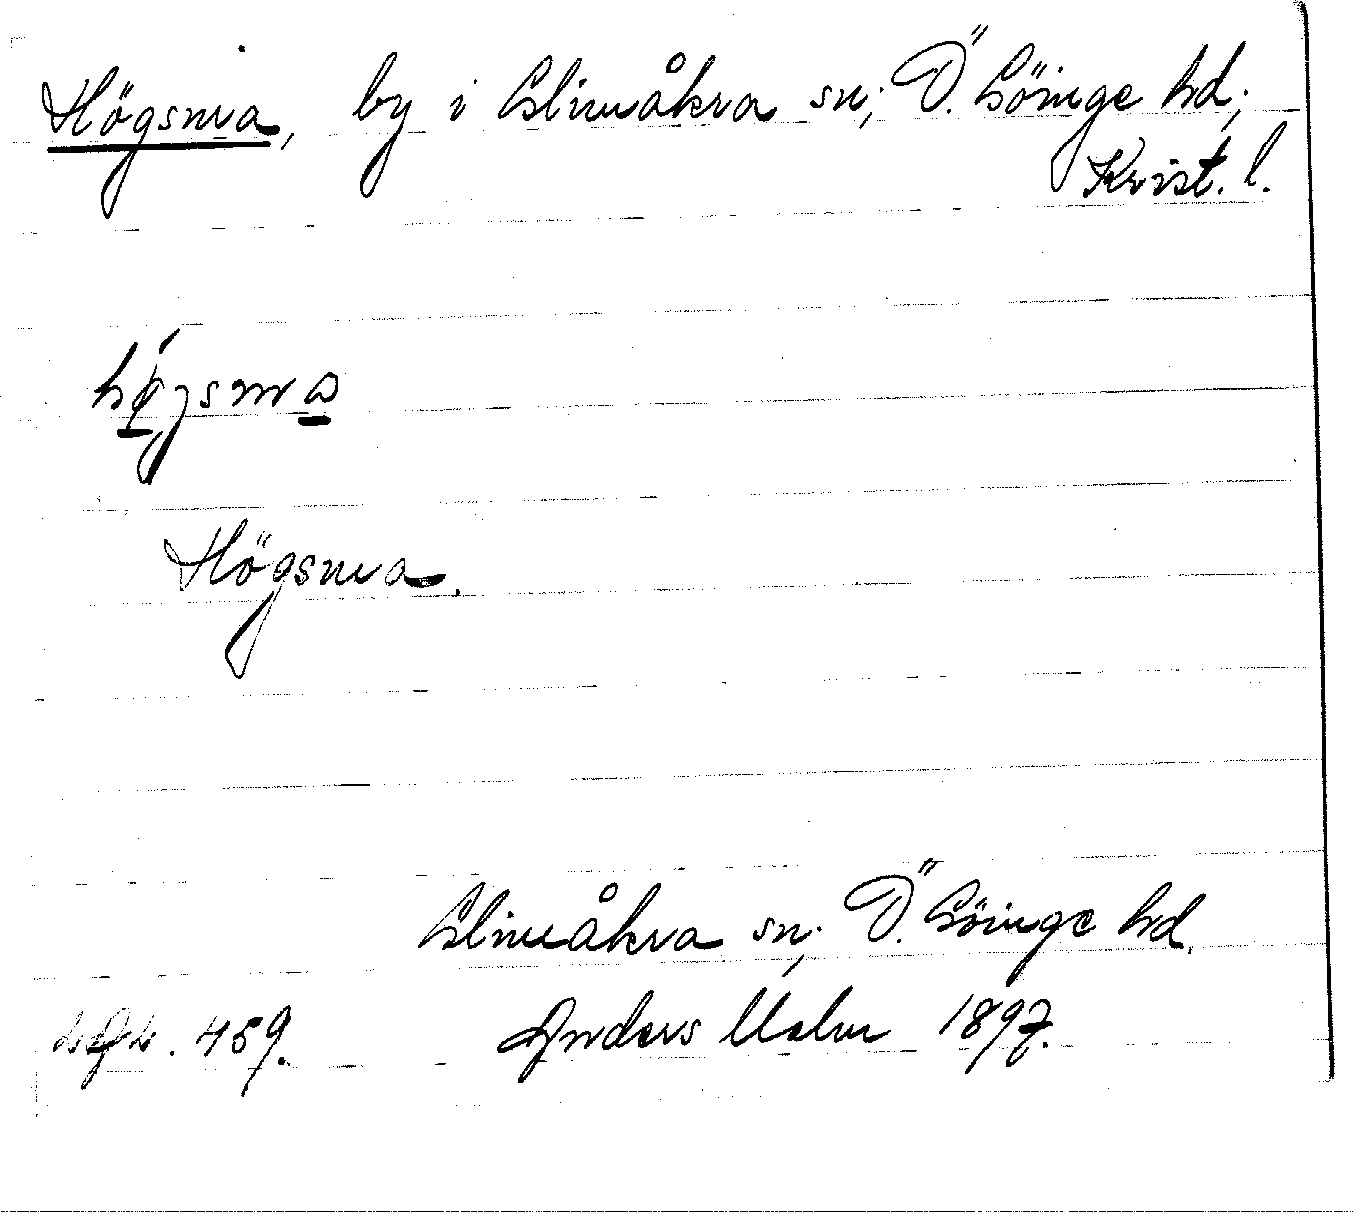 Högsma, by i Glimåkra sn; Ö. Göinge hd;
Krist. l.
hǿgsma
Högsma.
Glimåkra sn; Ö. Göinge hd.
459. Anders Malm 1897.